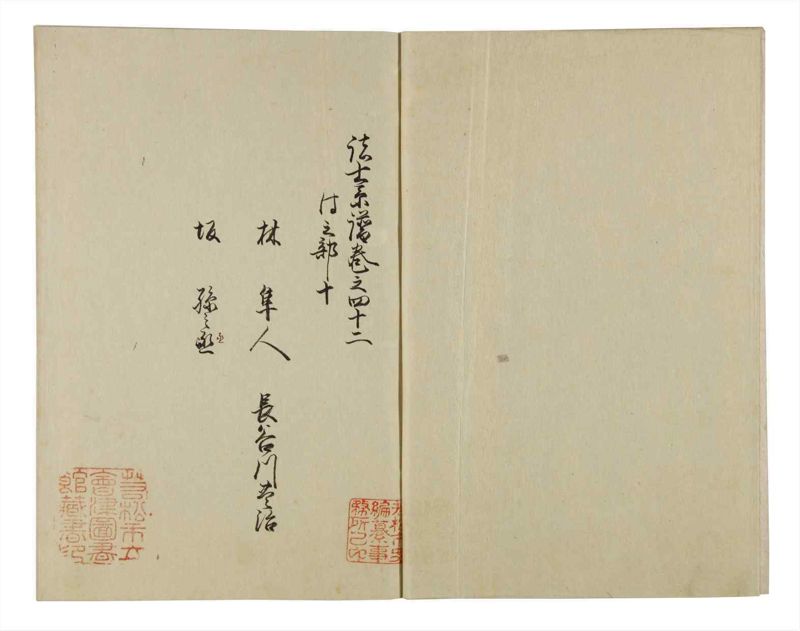 諸士系譜巻之四十二
波之部十
林隼人 長谷川 治
坂孫之丞
丞
若松市立
會津圖書
館藏書印
編纂事
務所之印